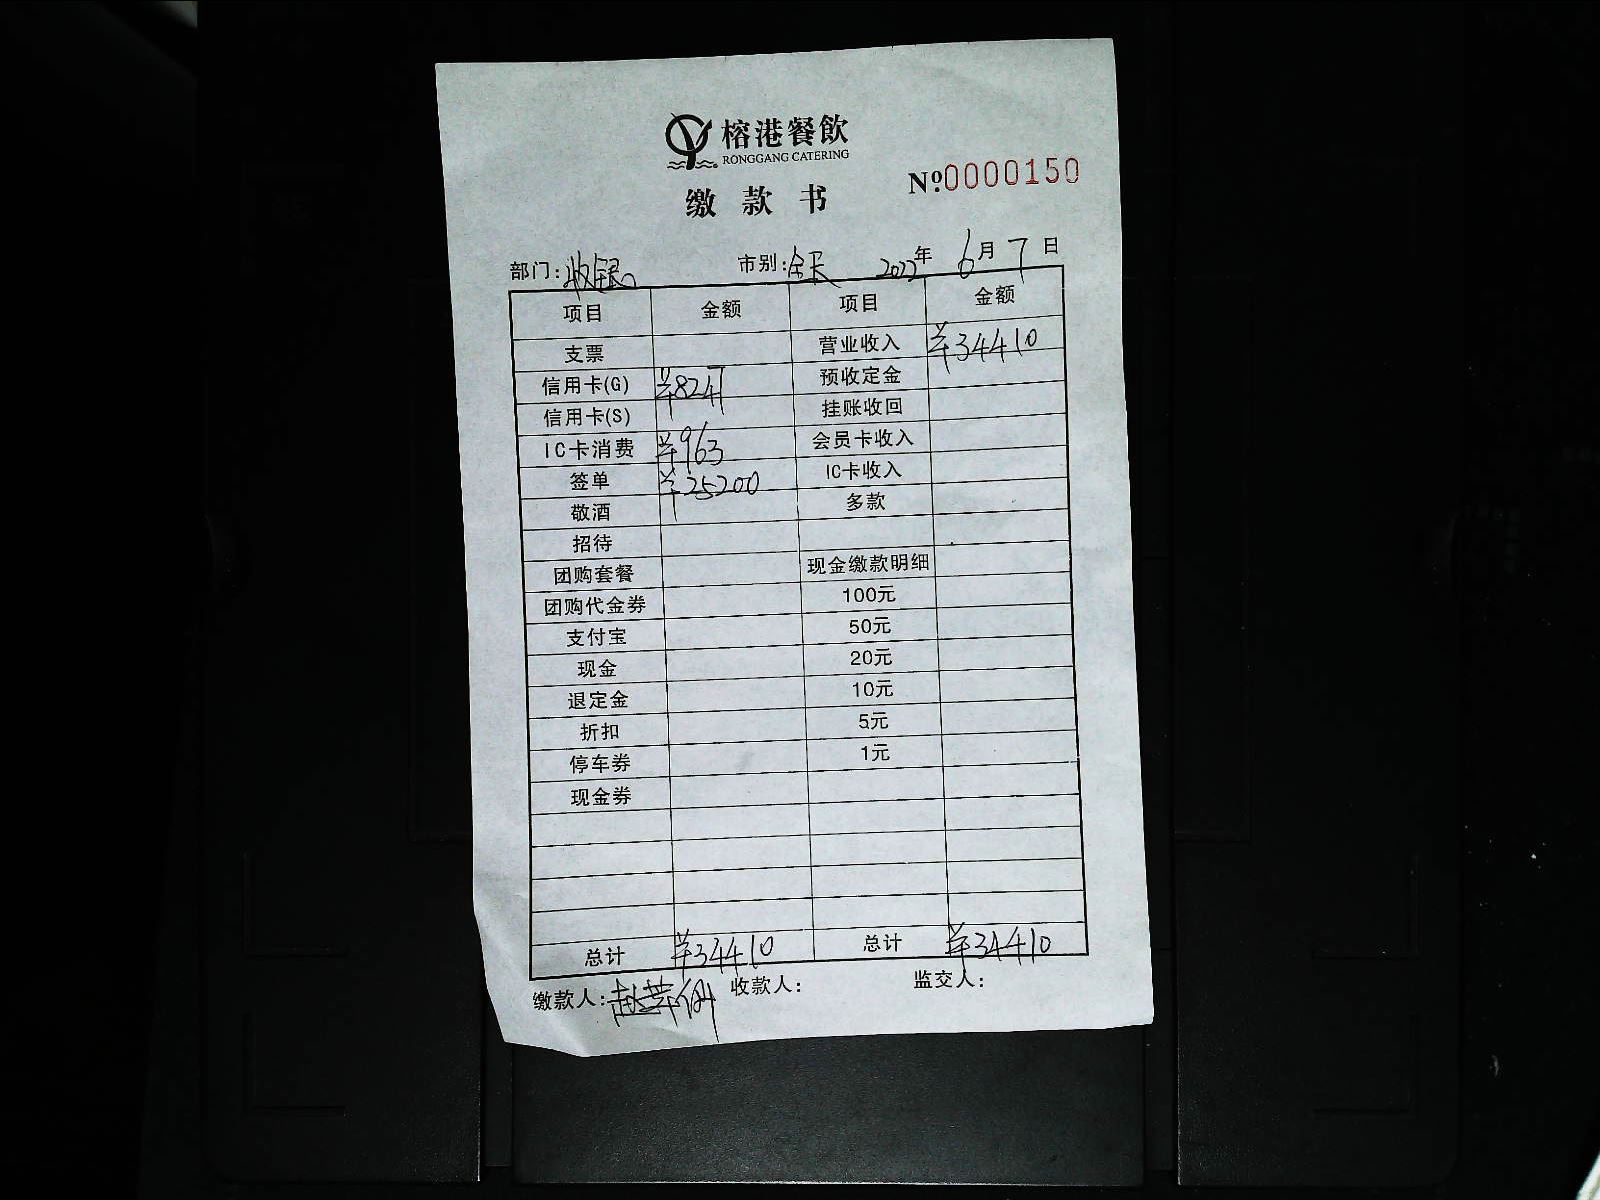 榕港餐飲
RONGGANG CATERING
缴款书 Nº:0000150
部门:收银 市别:全天 2022年6月7日
项目 金额 项目 金额
支票 营业收入 ¥34410
信用卡(G) ¥8247 预收定金
信用卡(S) 挂账收回
IC卡消费 ¥963 会员卡收入
签单 ¥25200 IC卡收入
敬酒 多款
招待
团购套餐 现金缴款明细
团购代金券 100元
支付宝 50元
现金 20元
退定金 10元
折扣 5元
停车券 1元
现金券
总计 ¥34410 总计 ¥34410
缴款人: 收款人: 监交人: